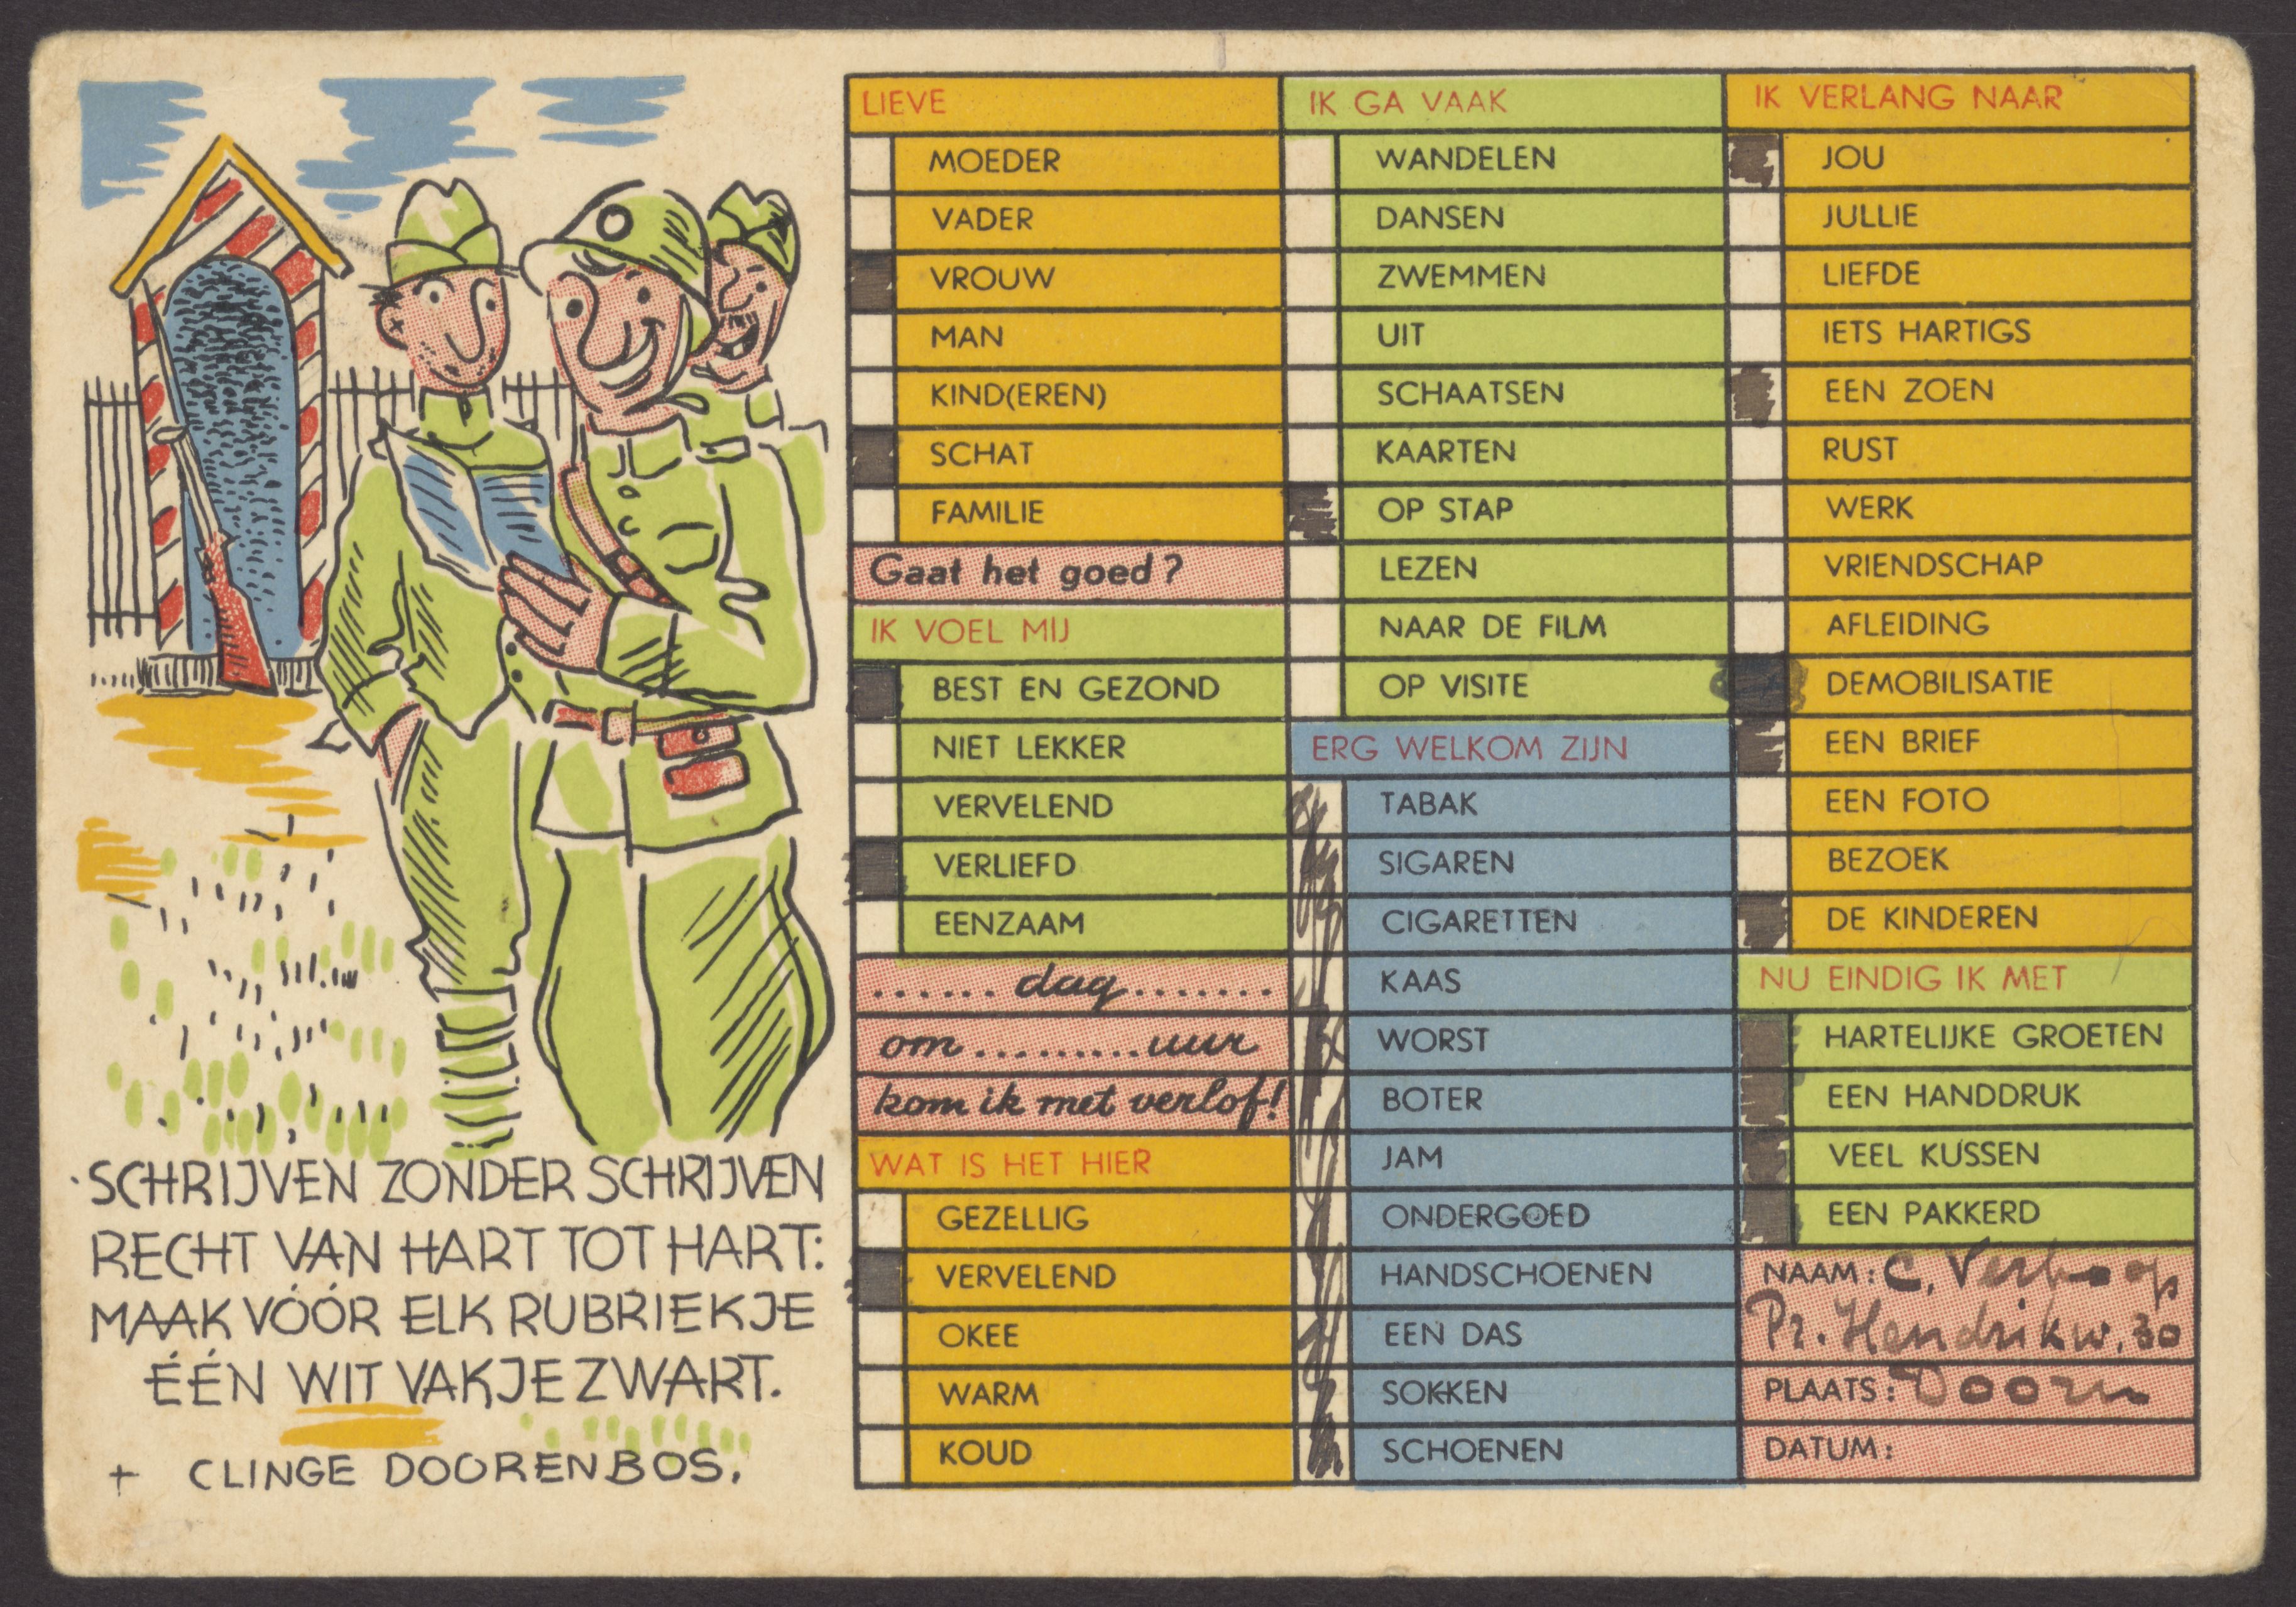 SCHRIJVEN ZONDER SCHRIJVEN
RECHT VAN HART TOT HART:
MAAK VÓÓR ELK RUBRIEKJE
ÉÉN WIT VAKJE ZWART.
CLINGE DOORENBOS.
LIEVE
MOEDER
VADER
VROUW
MAN
KIND(EREN)
SCHAT
FAMILIE
Gaat het goed?
IK VOEL MIJ
BEST EN GEZOND
NIET LEKKER
VERVELEND
VERLIEFD
EENZAAM
...... dag.......
om..........uur
kom ik met verlof!
WAT IS HET HIER
GEZELLIG
VERVELEND
OKEE
WARM
KOUD
IK GA VAAK
WANDELEN
DANSEN
ZWEMMEN
UIT
SCHAATSEN
KAARTEN
OP STAP
LEZEN
NAAR DE FILM
OP VISITE
ERG WELKOM ZIJN
TABAK
SIGAREN
CIGARETTEN
KAAS
WORST
BOTER
JAM
ONDERGOED
HANDSCHOENEN
EEN DAS
SOKKEN
SCHOENEN
IK VERLANG NAAR
JOU
JULLIE
LIEFDE
IETS HARTIGS
EEN ZOEN
RUST
WERK
VRIENDSCHAP
AFLEIDING
DEMOBILISATIE
EEN BRIEF
EEN FOTO
BEZOEK
DE KINDEREN
NU EINDIG IK MET
HARTELIJKE GROETEN
EEN HANDDRUK
VEEL KUSSEN
EEN PAKKERD
NAAM: C. Verhoop
Pr. Hendrikw. 30
PLAATS: Doorn
DATUM: